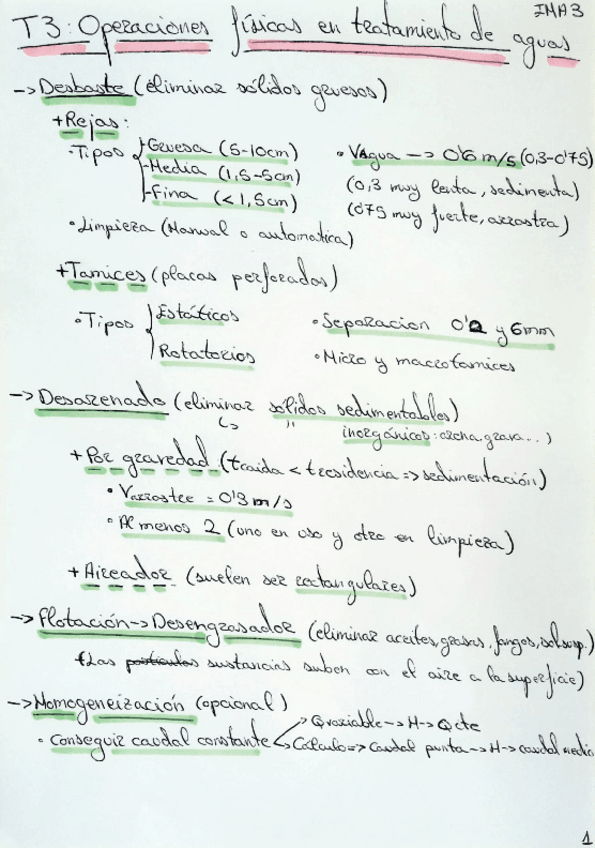 IMA3
T3: Operaciones físicas en tratamiento de aguas
-> Desbaste (eliminar sólidos gruesos)
+Rejas:
·Tipos
-Gruesa (5-10cm)
-Media (1,5-5cm)
-Fina (<1,5cm)
• VAgua -> 0'6 m/s (0,3-0'75)
(0,3 muy lenta, sedimenta)
(075 muy fuerte, arrastra)
• Limpieza (Manual o automatica)
+Tamices (placas perforadas)
·Tipos
Estáticos
Rotatorios
·Separacion 0'2 y 6mm
·Micro y macrotamices
-> Desarenado (eliminar solidos sedimentables)
inorgánicos: arena, grava...)
+ Por gravedad (tcaida < tresidencia => sedimentación)
• Varrastre = 0'3 m/s
• Al menos 2 (uno en uso y otro en limpieza)
+ Aireador (suelen ser rectangulares)
-> Flotación -> Desengrasador (eliminar aceites, grasas, fangos, sol susp.)
(Las particulas sustancias suben con el aire a la superficie)
-> Homogeneización (opcional)
• Conseguir caudal constante
Q variable -> H -> Q cte
Cálculo => Caudal punta -> H -> caudal medio
1